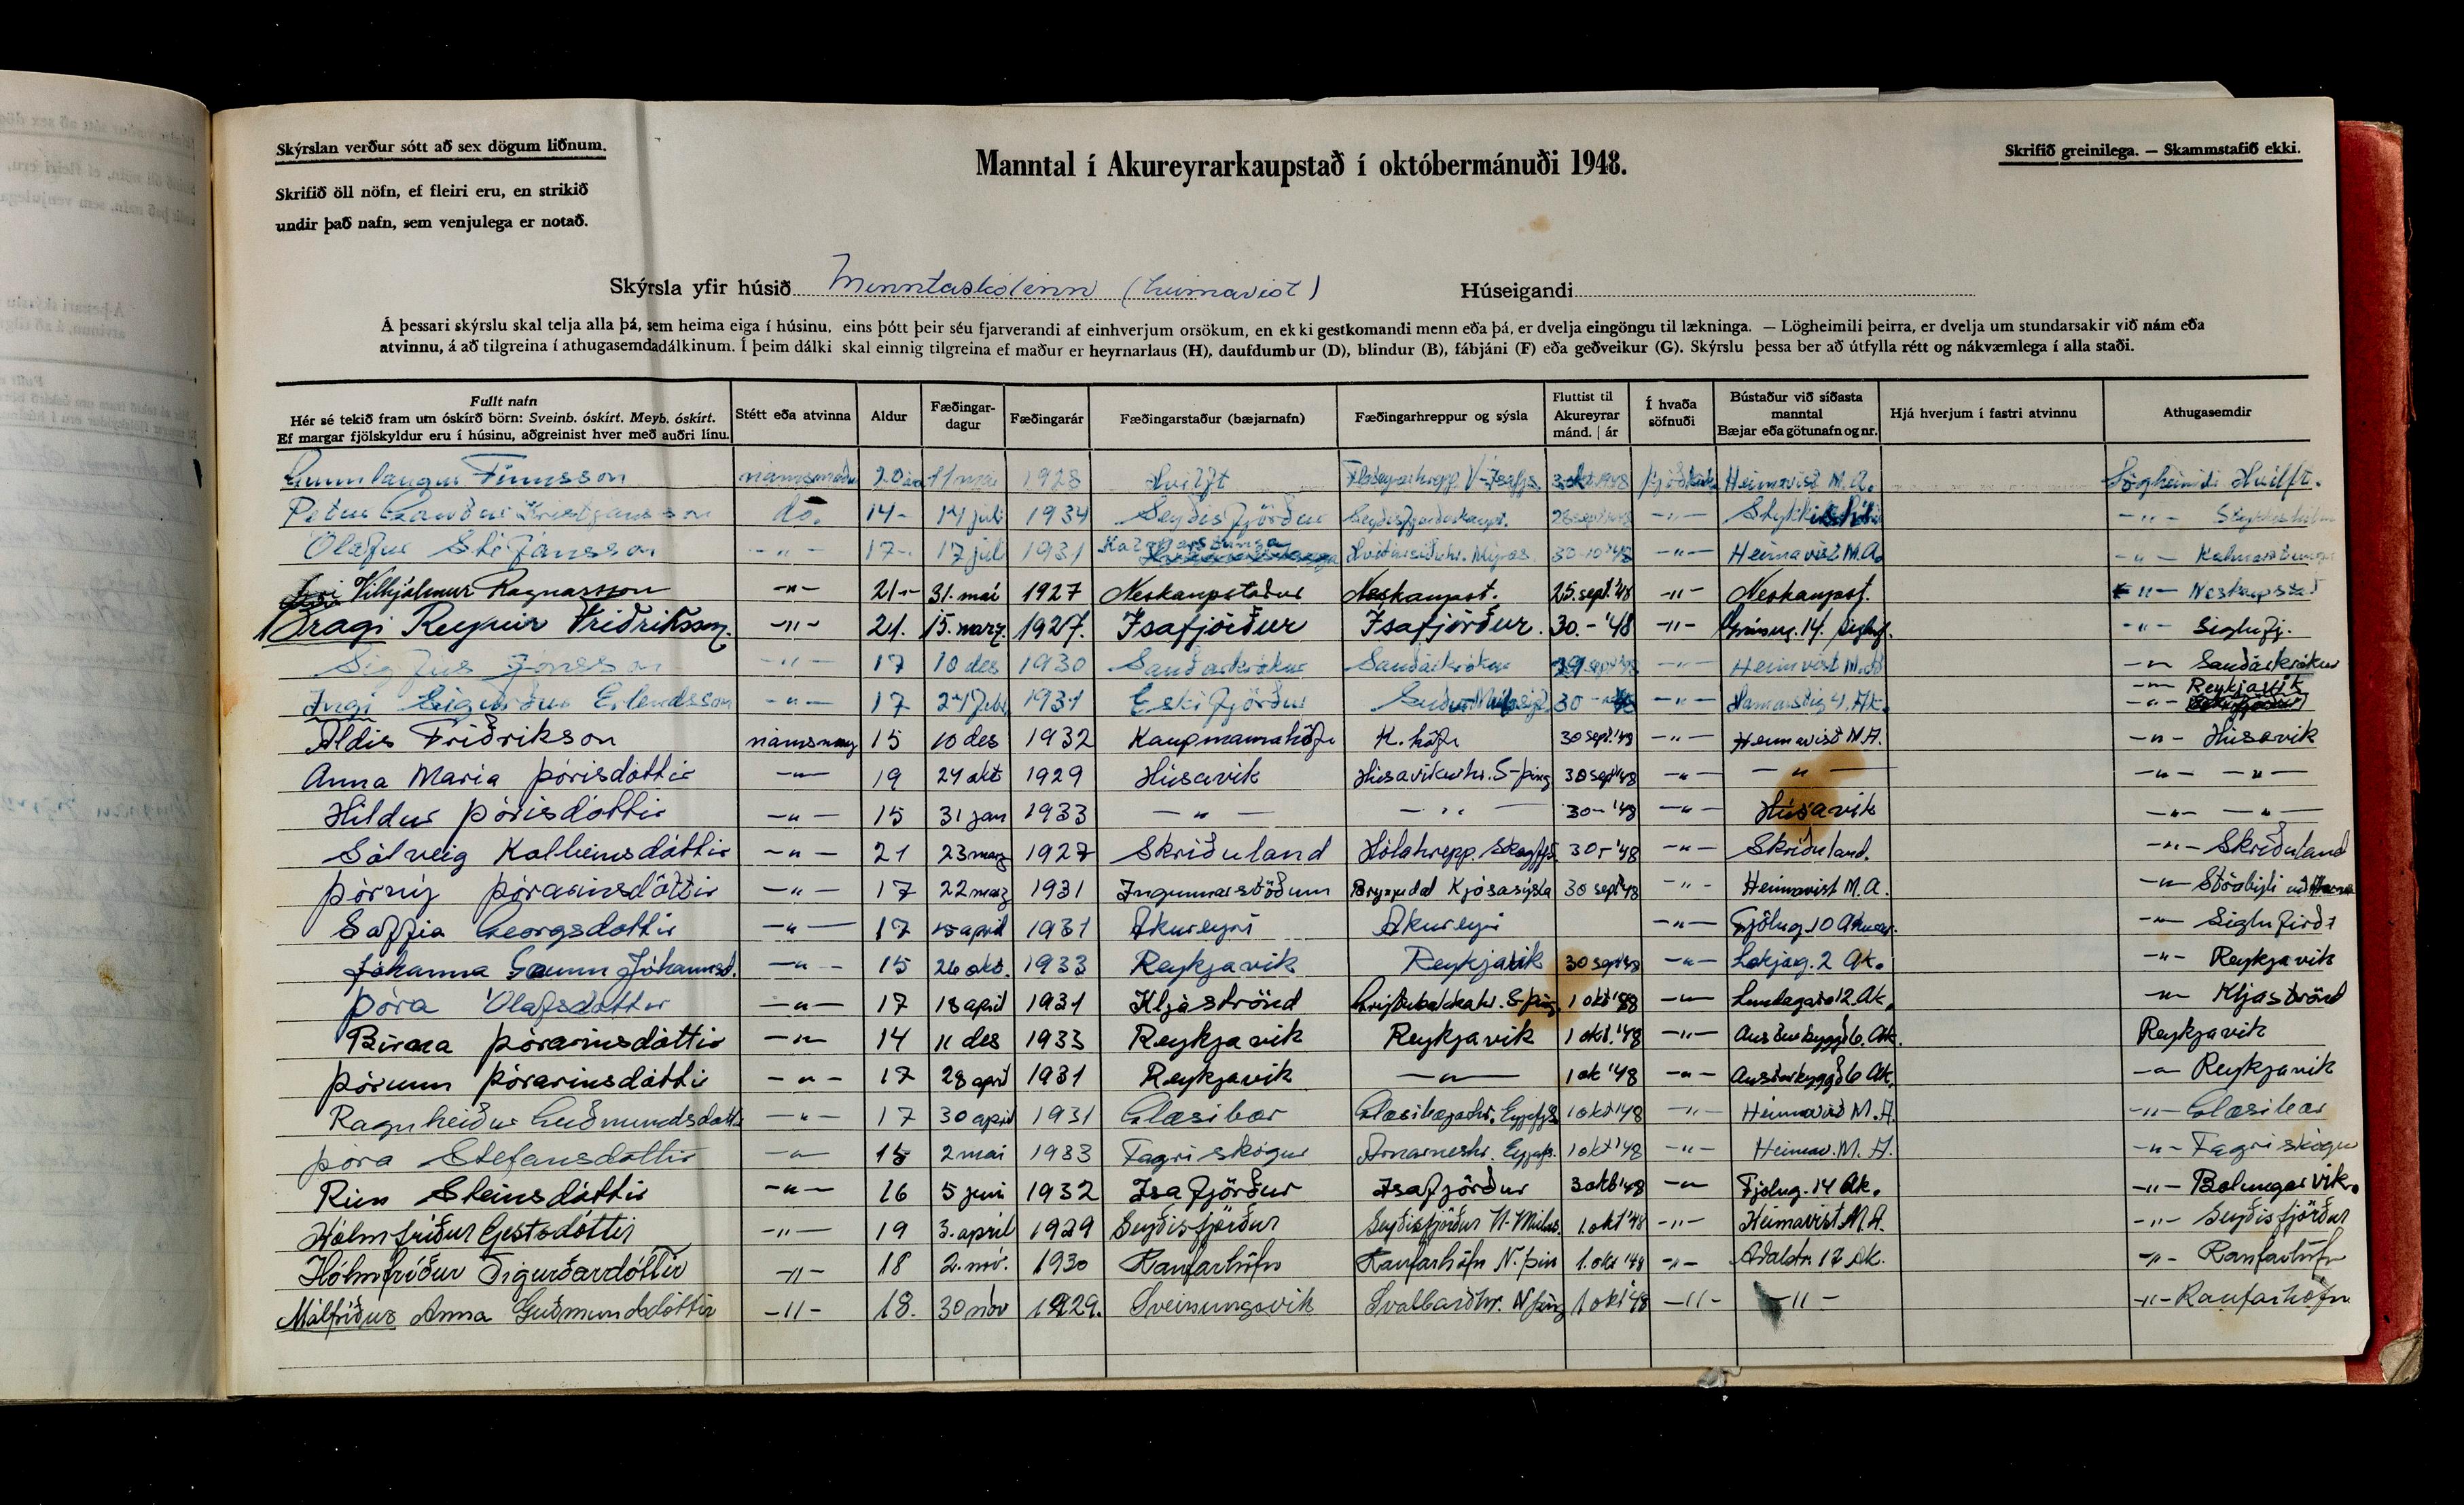 Skýrslan verður sótt að sex dögum liðnum.
Skrifið öll nöfn, ef fleiri eru, en strikið
undir það nafn, sem venjulega er notað.
Manntal í Akureyrarkaupstað í októbermánuði 1948.
Skrifið greinilega. — Skammstafið ekki.
Skýrsla yfir húsið Menntaskólinn (heimavist) Húseigandi
Á þessari skýrslu skal telja alla þá, sem heima eiga í húsinu, eins þótt þeir séu fjarverandi af einhverjum orsökum, en ekki gestkomandi menn eða þá, er dvelja eingöngu til lækninga. — Lögheimili þeirra, er dvelja um stundarsakir við nám eða
atvinnu, á að tilgreina í athugasemdadálkinum. Í þeim dálki skal einnig tilgreina ef maður er heyrnarlaus (H), daufdumbur (D), blindur (B), fábjáni (F) eða geðveikur (G). Skýrslu þessa ber að útfylla rétt og nákvæmlega í alla staði.
Fullt nafn Hér sé tekið fram um óskírð börn: Sveinb. óskírt. Meyb. óskírt. Ef margar fjölskyldur eru í húsinu, aðgreinist hver með auðri línu. Stétt eða atvinna Aldur Fæðingar-dagur Fæðingarár Fæðingarstaður (bæjarnafn) Fæðingarhreppur og sýsla Fluttist til Akureyrar mánd. | ár Í hvaða söfnuði Bústaður við síðasta manntal Bæjar eða götunafn og nr. Hjá hverjum í fastri atvinnu Athugasemdir
Gunnlaugur Finnsson námsmaður 20 ára 11 maí 1928 Hvilft V-Ísafjs. 3 okt. 1948 Heimavist M.A. Lögheimili Hvilft.
Pétur Gautur Kristjánsson do. 14 - 1934 Seyðisfjörður -"- -"-
Ólafur Stefánsson -"- 17 - 17 júl 1931 Kalmanstunga Hvítársíðuhr. Mýras. 30-10 '48 -"- Heimavist M.A. -"- Kalmanstunga
Vilhjálmur Ragnarsson -"- 21 - 31. maí 1927 Neskaupstaður Neskaupst. 25. sept. '48 -"- Neskaupst. -"- Neskaupstað
Bragi Reynir Friðriksson. -"- 21. 15. marz. 1927. Ísafjörður Ísafjörður. 30. - '48 -"- 14. Sigluf. -"- Siglufj.
Sigfús Jónsson -"- 17 10 des 1930 Sauðárkrókur Sauðárkrókur 29 sept '48 -"- Heimavist M.A -"- Sauðárkrókur
Ingi Sigurður Erlendsson -"- 17 24 febr 1931 Eskifjörður 30 - -"- Hamarstíg 4. Ak. -"- Reykjavík
Aldís Friðrikson námsmey 15 10 des 1932 Kaupmannahöfn K.höfn 30 sept. '48 -"- Heimavist M.A. -"- Húsavík
Anna María Þórisdóttir -"- 19 24 okt 1929 Húsavík Húsavíkurhr. S-Þing 30 sept '48 -"- -"- -"- -"-
Hildur Þórisdóttir -"- 15 31 jan 1933 -"- -"- 30 - '48 -"- Húsavík -"- -"-
Sólveig Kolbeinsdóttir -"- 21 23 marz 1927 Skriðuland Hólahrepp. Skagfjs. 30 - '48 -"- Skriðuland. -"- Skriðuland
Þórný Þórarinsdóttir -"- 17 22 marz 1931 Ingunnarstöðum Brynjudal Kjósasýsla 30 sept '48 -"- Heimavist M.A.
Soffía Georgsdóttir -"- 17 15 apríl 1931 Akureyri Akureyri -"- Fjólug. 10 Akur. -"- Siglufirði
Jóhanna Gunn Jóhannsd. -"- 15 26 okt. 1933 Reykjavík Reykjavík 30 sept '48 -"- Lækjarg. 2 Ak. -"- Reykjavík
Þóra Ólafsdóttir -"- 17 18 apríl 1931 Kljáströnd Grýtubakkahr. S-Þing. 1 okt '48 -"- Lundagata 12. Ak. -"- Kljáströnd
Birna Þórarinsdóttir -"- 14 11 des 1933 Reykjavík Reykjavík 1 okt. '48 -"- Austurbyggð 6. Ak. Reykjavík
Þórunn Þórarinsdóttir -"- 17 28 apríl 1931 Reykjavík -"- 1 ok '48 -"- Austurbyggð 6 Ak. -"- Reykjavík
Ragnheiður Guðmundsdótti -"- 17 30 apríl 1931 Glæsibær Glæsibæjarhr. Eyjafjs. 1 okt '48 -"- Heimavist M.A. -"- Glæsibær
Þóra Stefánsdóttir -"- 15 2 maí 1933 Fagriskógur Arnarneshr. Eyjafs. 1 okt '48 -"- Heimav. M.A. -"- Fagriskógur
Rún Steinsdóttir -"- 16 5 júní 1932 Ísafjörður Ísafjörður 3 okt '48 -"- Fjólug. 14 Ak. -"- Bolungarvík.
Hólmfríður Gestsdóttir -"- 19 3. apríl 1929 Seyðisfjörður Seyðisfjörður N-Múlas. 1. okt '48 -"- Heimavist M.A. -"- Seyðisfjörður
Hólmfríður Sigurðardóttir -"- 18 2. nóv. 1930 Raufarhöfn Raufarhöfn N. Þin 1. okt '48 -"- Aðalstr. 12 Ak. -"- Raufarhöfn
Málfríður Anna Guðmundsdóttir -"- 18. 30 nóv 1929. Sveinungsvík Svalbarðhr. N þing 1 okt '48 -"- -"- -"- Raufarhöfn